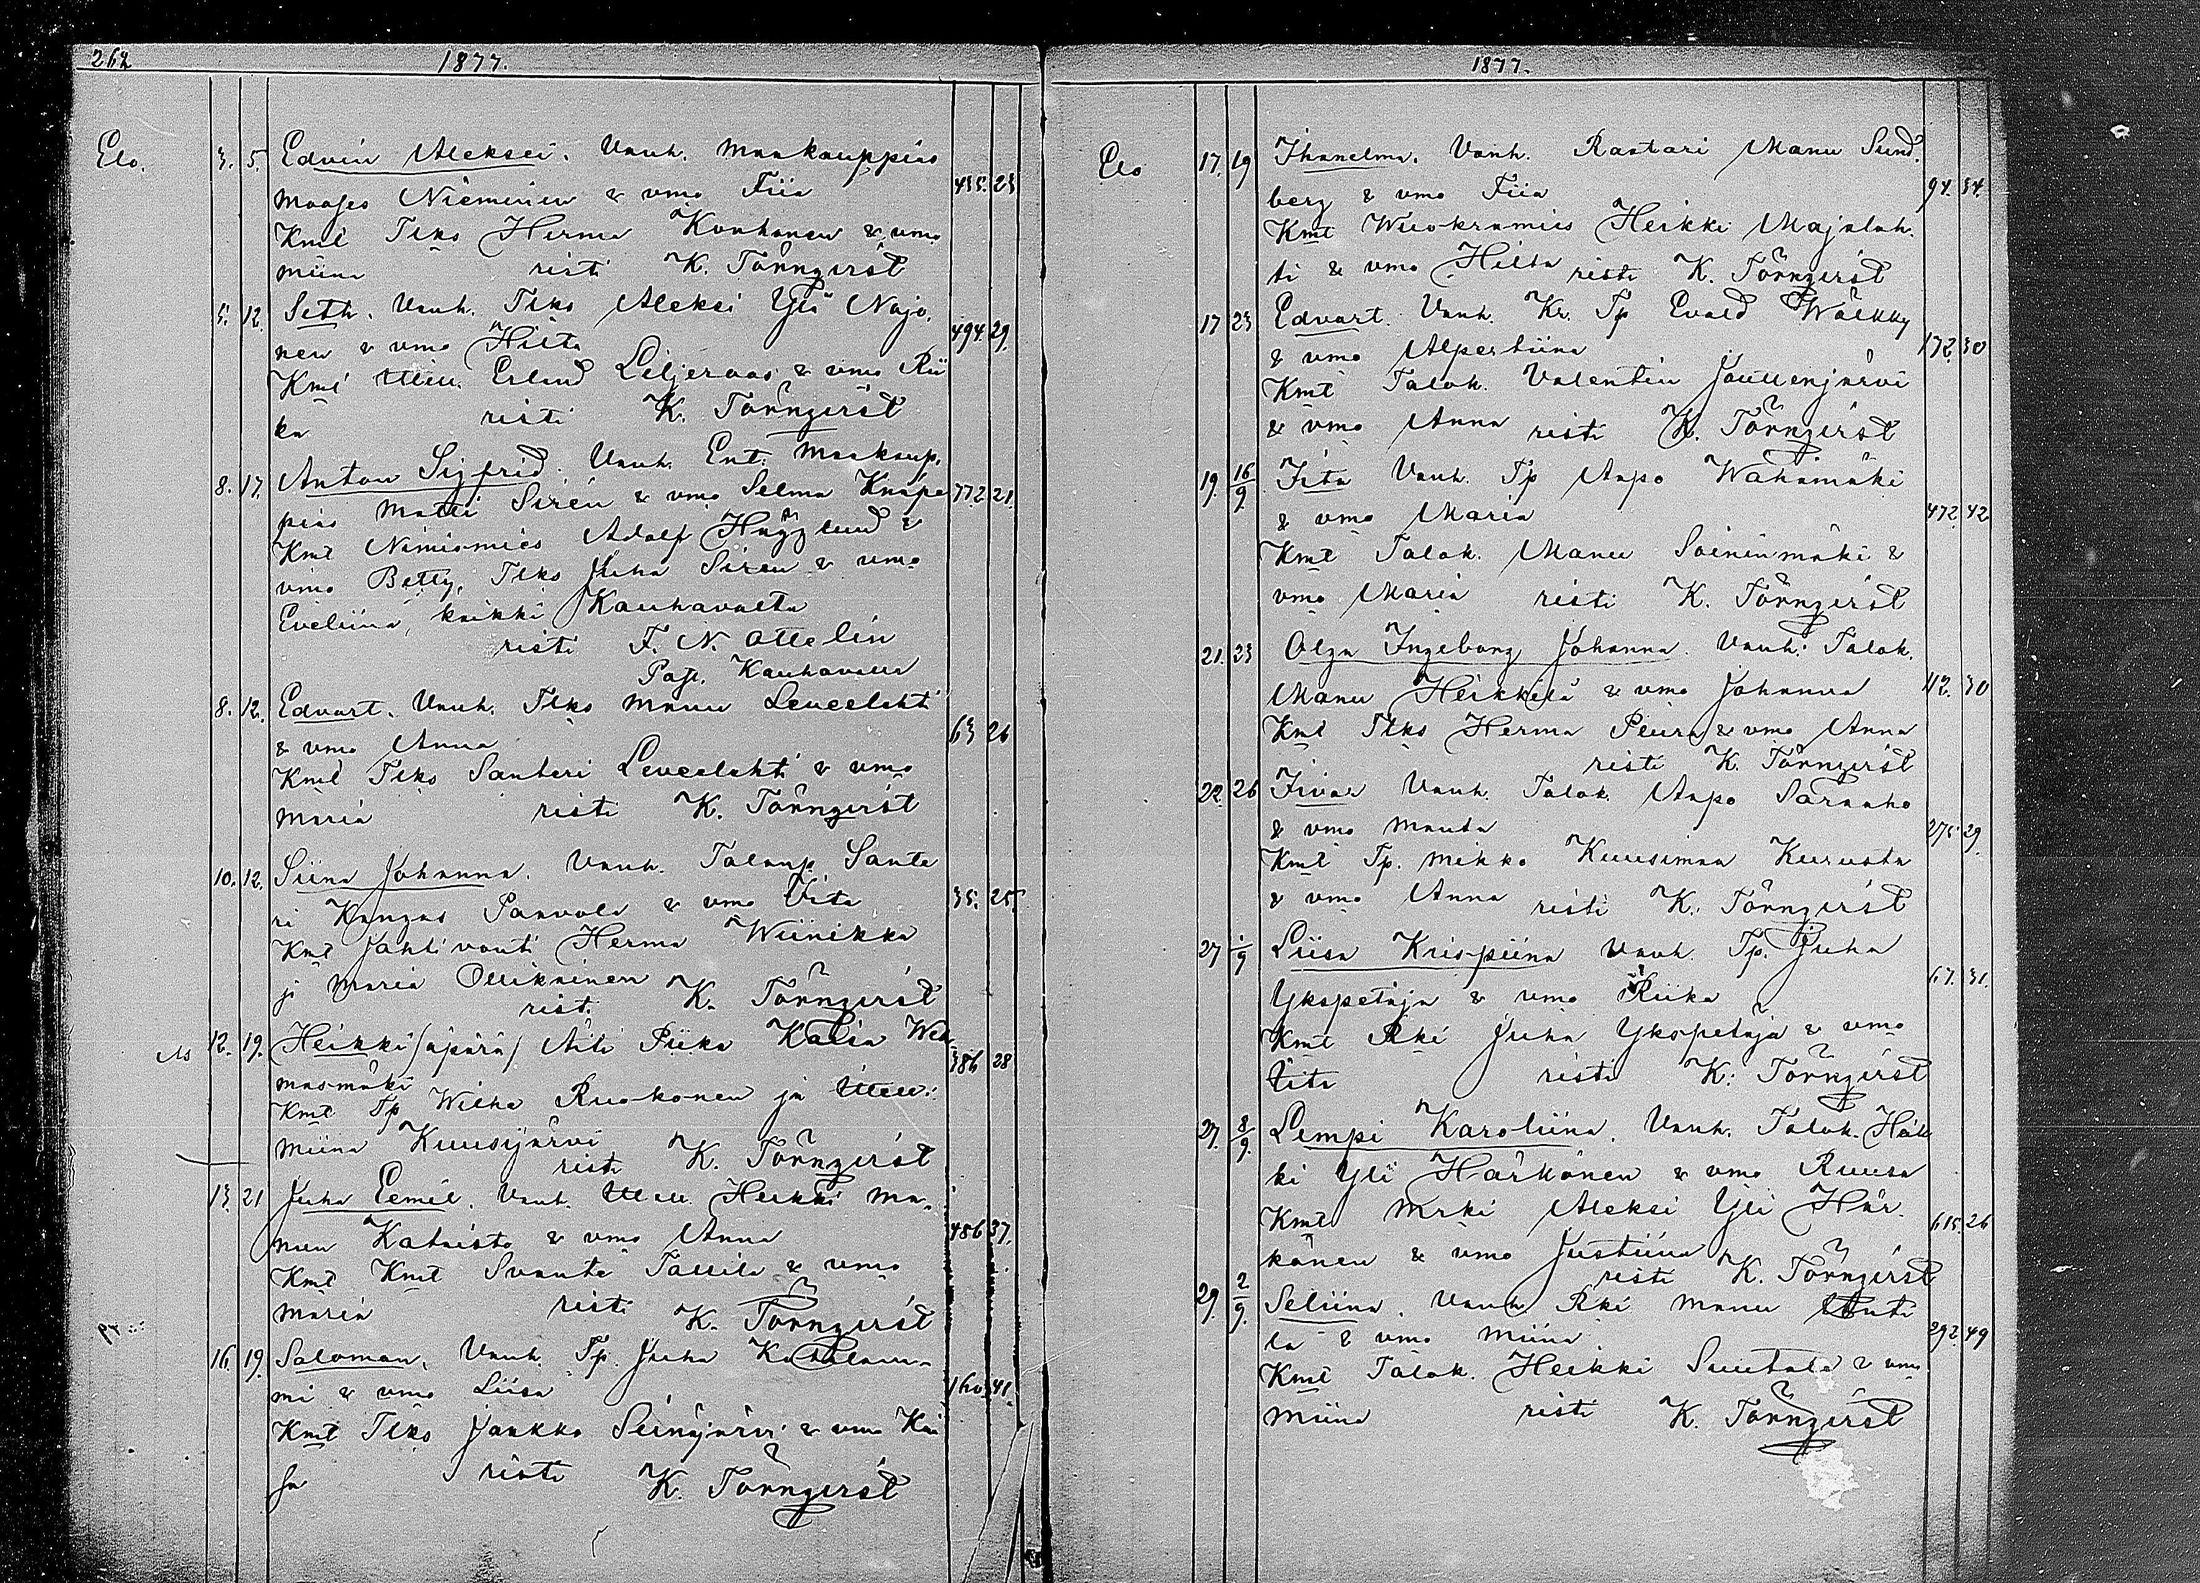 262 1877.
Elo. 3. 5. Edvin Aleksei. Vanh. Maakauppias
Moases Nieminen & vmo Fiia 435. 23
Kmt Tlks Herma Konhonen & vmo
Miina risti K. Törnqvist
5. 12. Seth. Vanh. Tlks Aleksi Yli Nojo.
nen & vmo Hilta 494. 29.
Kmt Erland Liljeroos & vmo Rii
ka risti K. Törnqvist
8. 17. Anton Sigfrid. Vanh. Ent. Maakaup.
pias Matti Sirén & vmo Selma Knape 772. 21.
Kmt Nimismies Adolf Hägglund &
vmo Betty, Tlks Juha Siren & vmo
Eveliina, kaikki Kauhavalta
risti F. N. Ottelin
Past. Kauhavalla
8. 12. Edvart. Vanh. Tlks Manu Leveelahti
& vmo Anna 63 26
Kmt Tlks Santeri Leveelahti & vmo
Maria risti K. Törnqvist
10. 12. Siina Johanna. Vanh. Talonp. Sante
ri Kangas Panvola & vmo Vita 35. 25.
Kmt Jahtivouti Herma Wiinikka
ja Maria Ollikainen
risti K. Törnqvist
12. 19. Heikki /äpärä/ Äiti Piika Kaisa Weh
masmäki 386 28
Kmt Tp Wilha Ruokonen ja
Miina Kuusijärvi
risti K. Törnqvist
13. 21 Juha Eemil. Vanh. Heikki Ma-
nuu Katajisto & vmo Anna 486 37.
Kmt Kmt Svante Tassila & vmo
Maria risti K. Törnqvist
16. 19. Saloman. Vanh. Tp. Juha
mi & vmo Liisa 160. 41.
Kmt Tlks Jaakko Seinäjärvi & vmo Kai
sa risti K. Törnqvist
1877.
Elo 17. 19 Ihanelma. Vanh. Raatari Manu Sund.
berg & vmo Fiia 94. 34.
Kmt Wuokramies Heikki Majalah.
ti & vmo Hilta risti K. Törnqvist
17 23 Edvart. Vanh. Kr. Tp Evald Wälkky
& vmo Alpertiina 172. 30
Kmt Talok. Valentin Jouttenjärvi
& vmo Anna risti K. Törnqvist
19. 16/9. Iita Vanh. Tp Aapo Wahämäki
& vmo Maria 472. 42
Kmt Talok. Manu Soininmäki &
vmo Maria risti K. Törnqvist
21. 23 Olga Ingeborg Johanna. Vanh. Talok.
Manu Heikkilä & vmo Johanna 112. 30
Kmt Tlks Herma Peura & vmo Anna
risti K. Törnqvist
22. 26 Iivar Vanh. Talok. Aapo Saranaho
& vmo Manta 275. 29.
Kmt Tp. Mikko Kuusimaa Kurusta
& vmo Anna risti K. Törnqvist
27 1/9 Liisa Krispiina Vanh. Tp. Juha
Ykspetäjä & vmo Riika 67. 31.
Kmt Rki Juha Ykspetäjä & vmo
Vita risti K. Törnqvist
27. 8/9. Lempi Karoliina. Vanh. Talok. Heik
ki Yli Härkönen & vmo Ruusa
Kmt Mrki Aleksi Yli Här. 615. 26
könen & vmo Justiina
risti K. Törnqvist
29. 2/9. Seliina. Vanh. Rki Manu Anti
la & vmo Miina 292. 49
Kmt Talok. Heikki Suutala & vmo
Miina risti K. Törnqvist